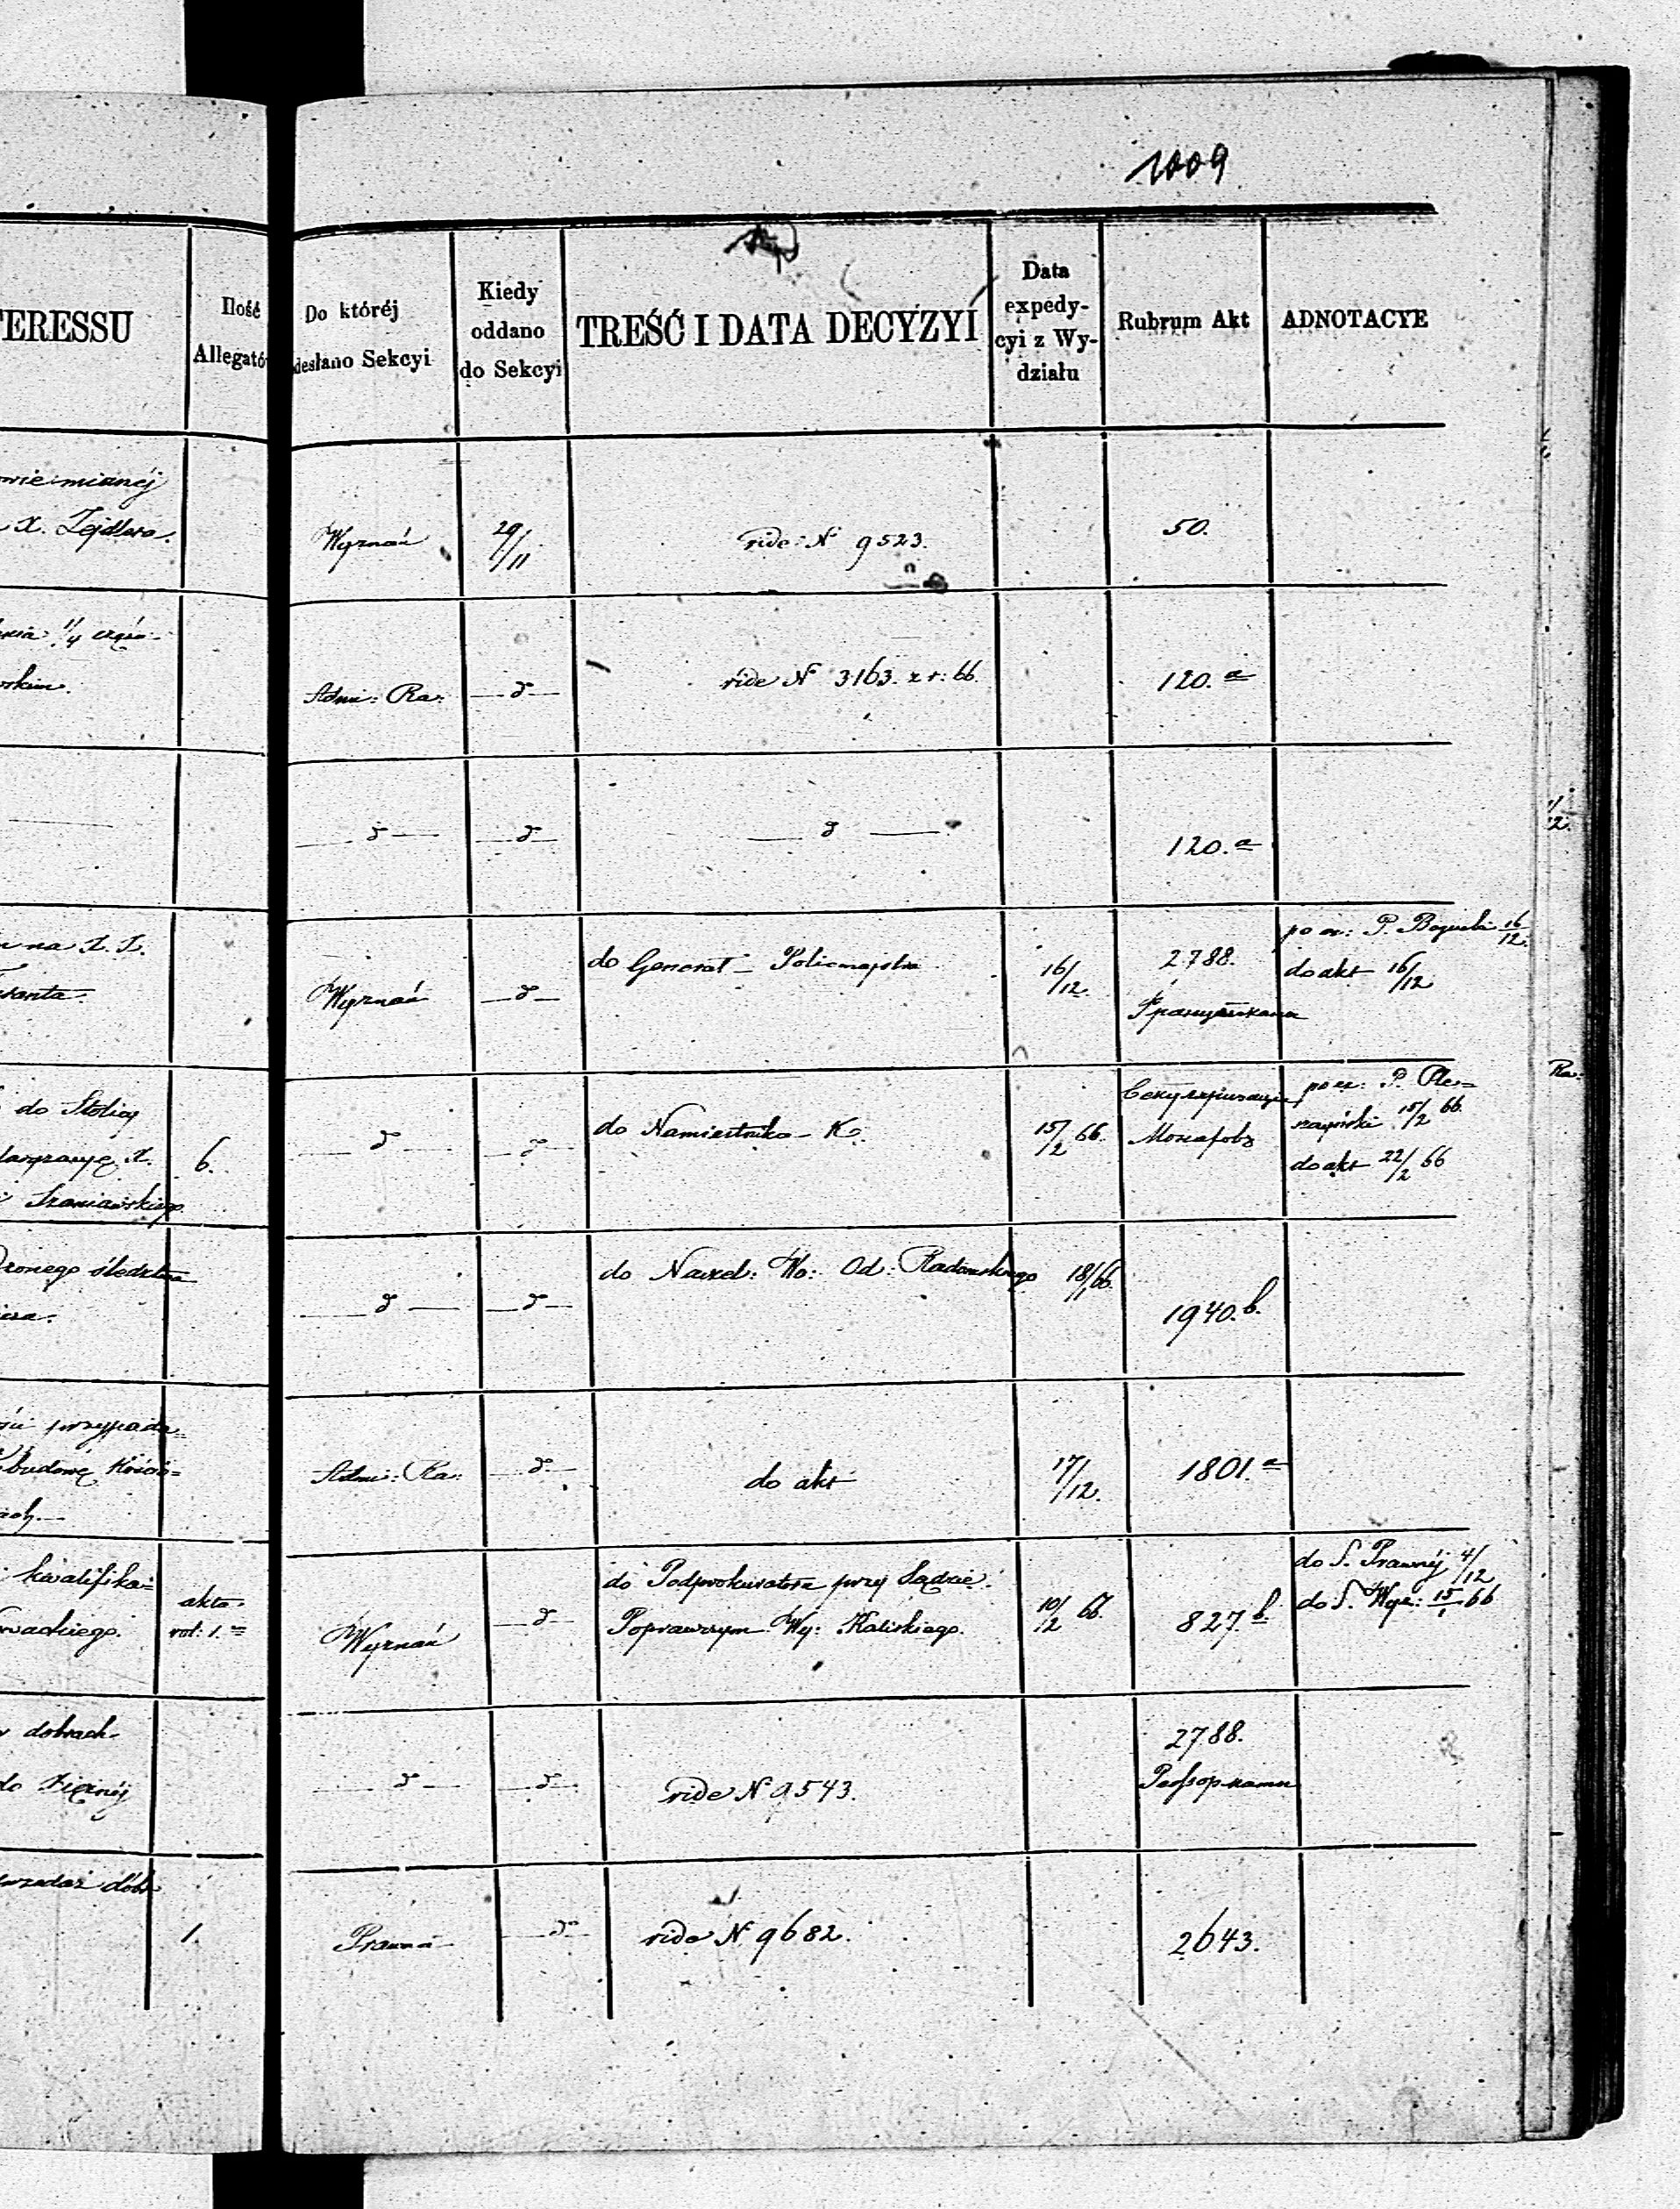 1009
TERESSU
Ilość
Allegató
Do któréj
desłano Sekcyi
Kiedy
oddano
do Sekcyi
TREŚĆ I DATA DECYZYI
Data
expedy-
cyi z Wy-
działu
Rubrum Akt
ADNOTACYE
X. Zejdlera.
Wyznań
29/11
vide N 9523.
50.
1/4 częś-
Adm: Ra:
d
vide N 3163. z r: 66.
120. a
d
d
d
120. a
na X. X.
Wyznań
d
do Generał- Policmajstra
16/12
2788.
P. Boguski 16/12
do akt 16/12
do Stolicy
X.
Szaniawskiego
6.
d
d
do Namiestnika K.
15/2 66.
Монаховъ
P. Ple=
15/2 66.
do akt 22/2 66
śledztwa
d
d
do Naczel: Wo: Od: Radomskiego
18/1 66.
1940. b.
przypada=
budowę Kościo=
Adm: Ra:
d
do akt
17/12.
1801. a
kwalifika=
akta
vol: 1.
Wyznań
d
do Podprokuratora przy Sądzie
Poprawczym Wy: Kaliskiego.
10/12 66.
827. b.
do S. Prawnéj 4/12
do S. Wyz: 15/1 66
dobrach
do
d
d
vide N 9543.
2788.
sprzedaż dóbr
1.
Prawna
d
vide N 9682.
2643.